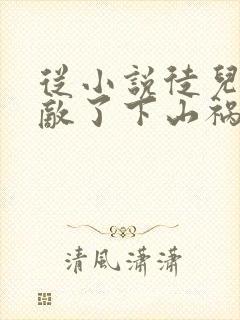 從小說徒兒
敵了下山禍
清風瀟瀟